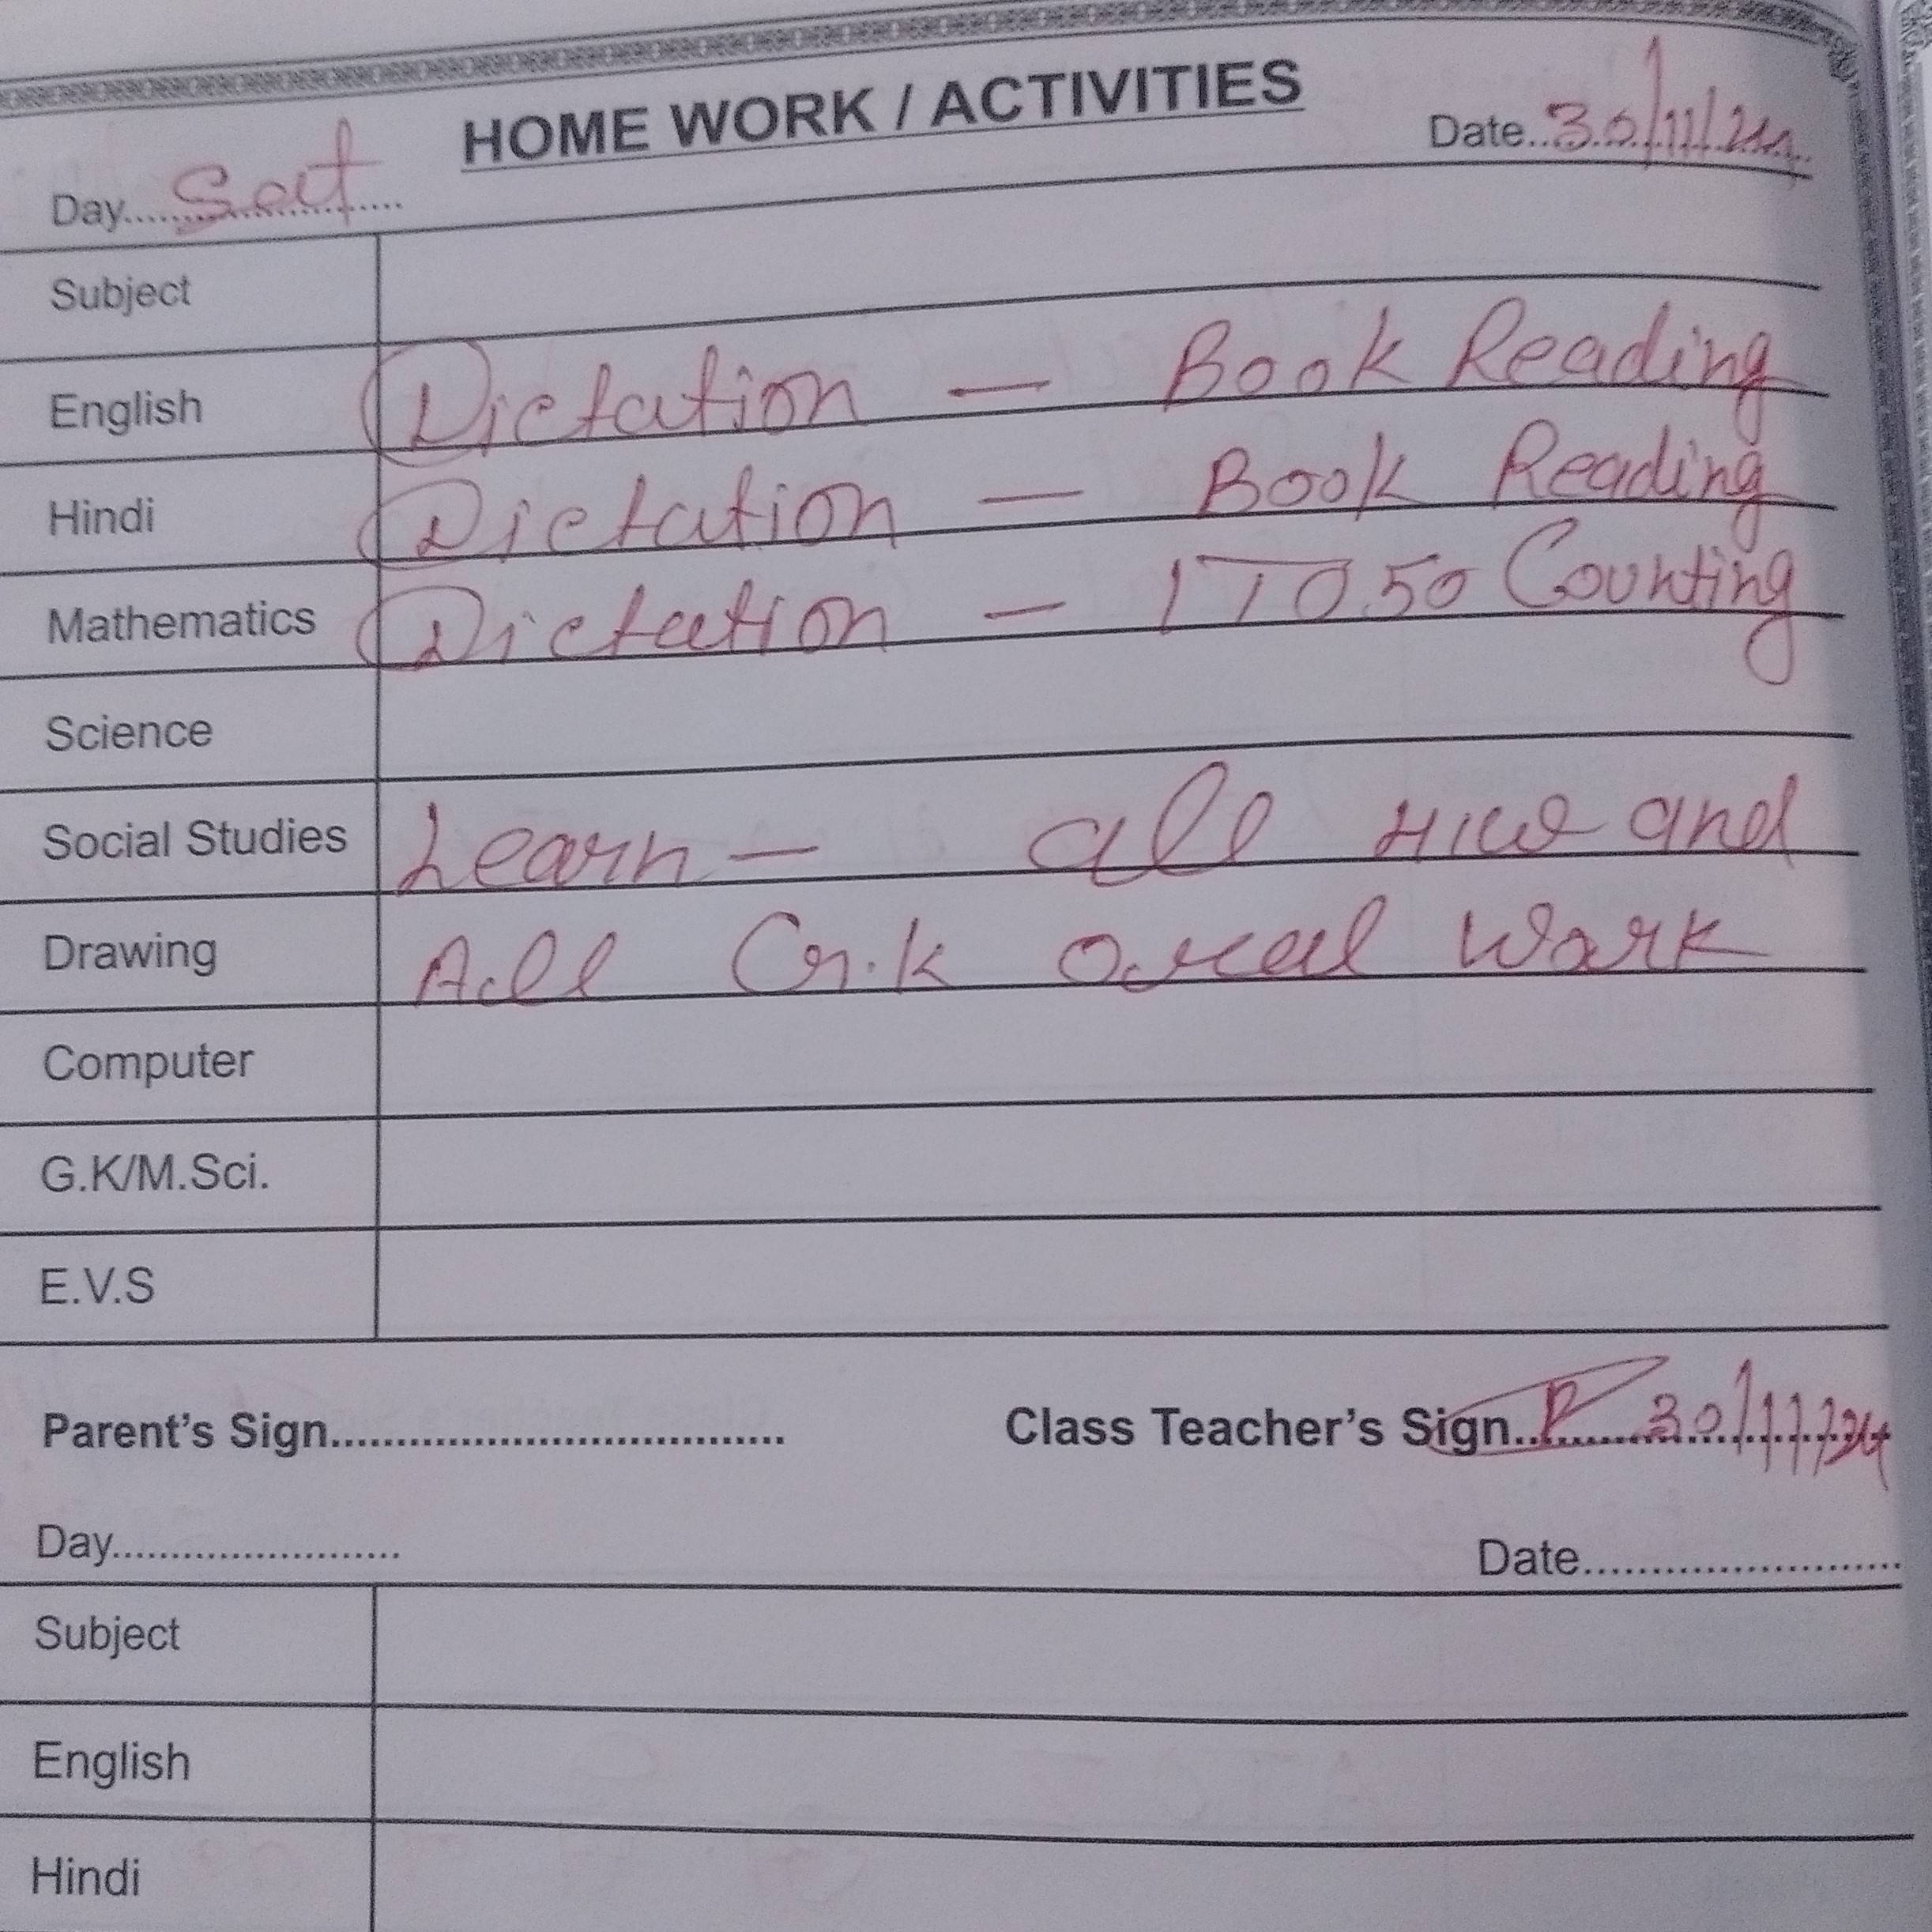 HOME WORK / ACTIVITIES
Day........Sat........ Date..30/11/24
Subject
English Dictation — Book Reading
Hindi Dictation — Book Reading
Mathematics Dictation — 1 TO 50 Counting
Science
Social Studies Learn — all H/W and
Drawing All G.K Oral Work
Computer
G.K/M.Sci.
E.V.S
Parent's Sign................................... Class Teacher's Sign............30/11/24
Day........................ Date........................
Subject
English
Hindi